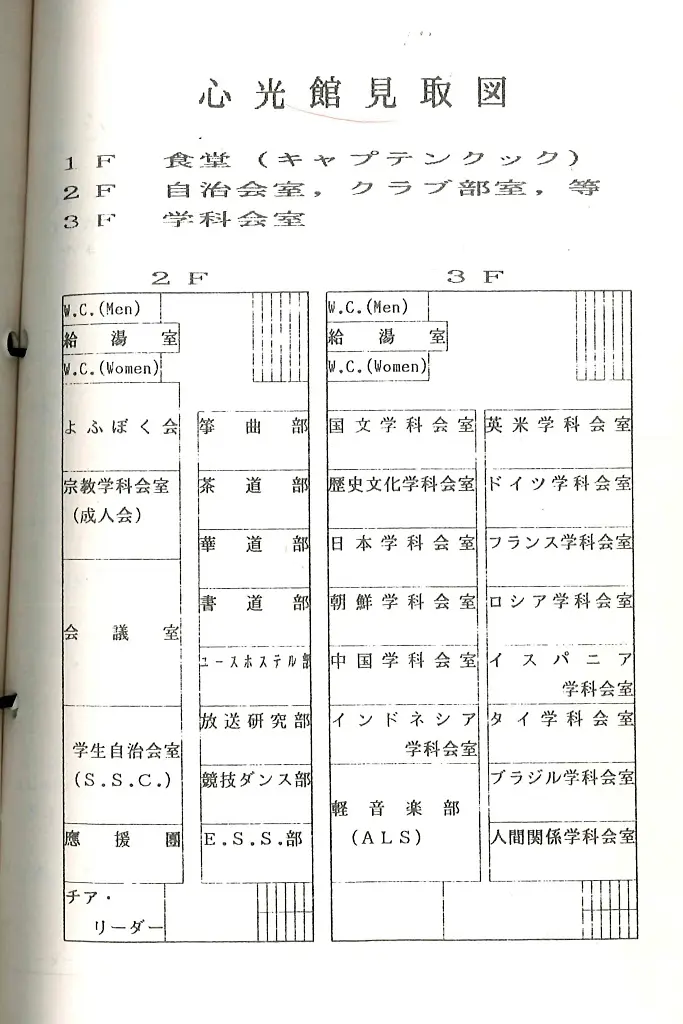 心光館見取図
1F 食堂(キャプテンクック)
2F 自治会室,クラブ部室,等
3F 学科会室
2F
W.C.(Men)
給湯室
W.C.(Women)
よふぼく会
宗教学科会室
(成人会)
会議室
学生自治会室
(S.S.C.)
應援團
チア・
リーダー
箏曲部
茶道部
華道部
書道部
ユースホステル部
放送研究部
競技ダンス部
E.S.S.部
3F
W.C.(Men)
給湯室
W.C.(Women)
国文学科会室
歴史文化学科会室
日本学科会室
朝鮮学科会室
中国学科会室
インドネシア
学科会室
軽音楽部
(ALS)
英米学科会室
ドイツ学科会室
フランス学科会室
ロシア学科会室
イスパニア
学科会室
タイ学科会室
ブラジル学科会室
人間関係学科会室